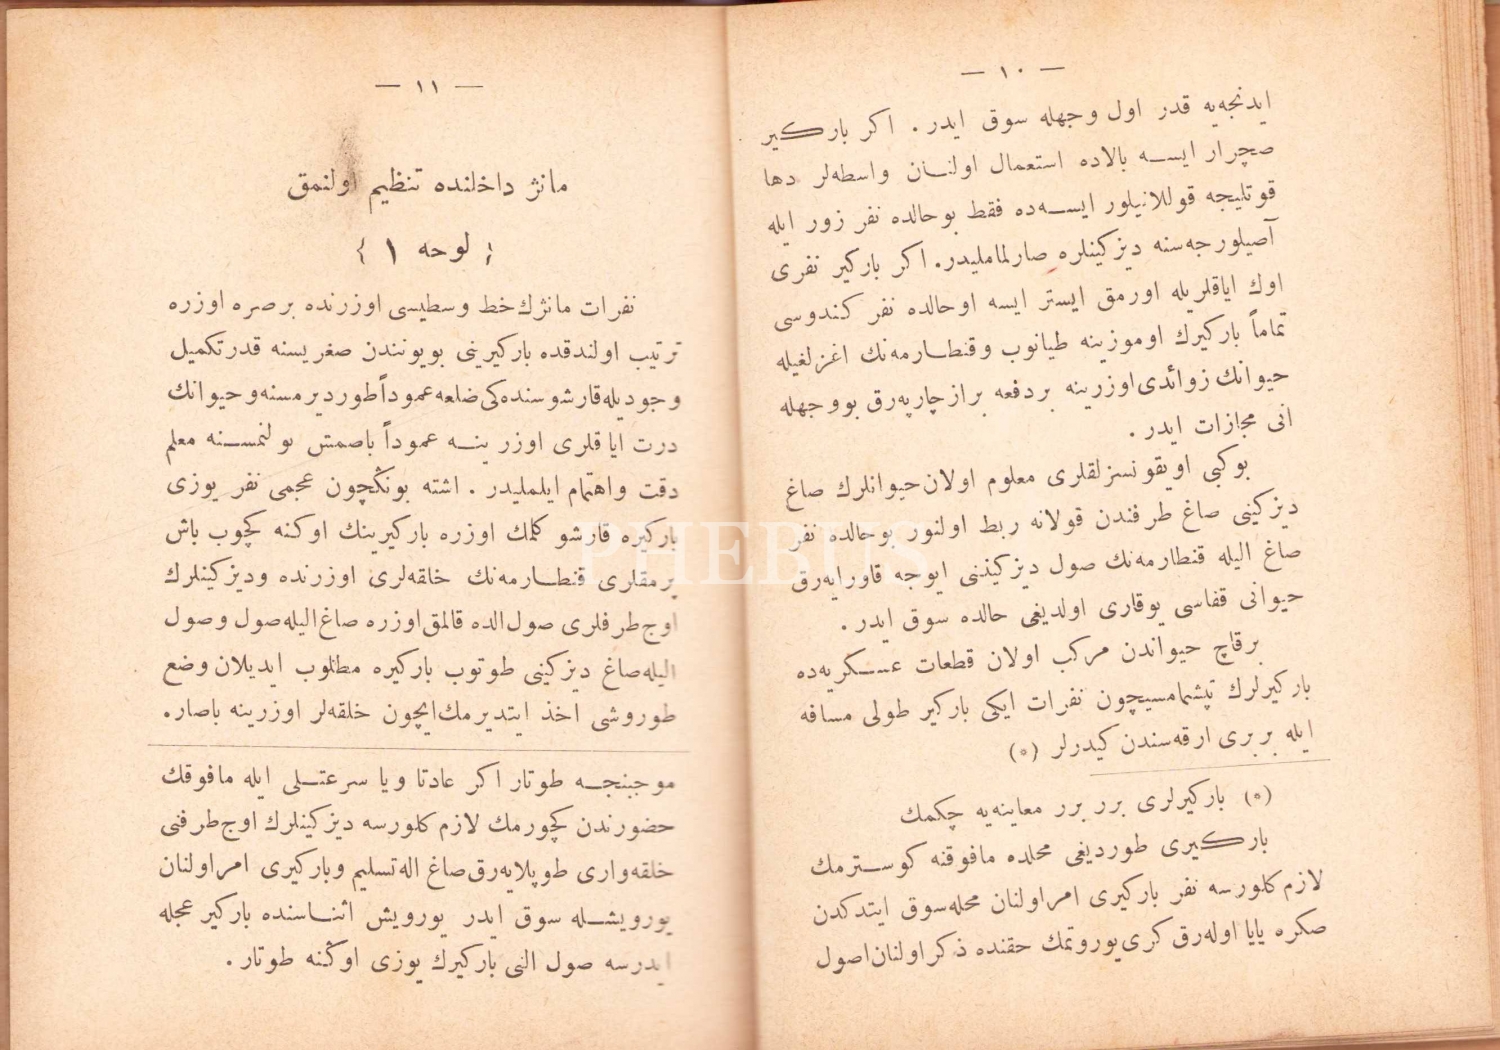 — ١٠ —
ایدنجه‌یه قدر اول وجهله سوق ایدر . اكر باركیر
صچرار ایسه بالاده استعمال اولنان واسطه‌لر دها
قوتلیجه قوللانیلور ایسه‌ده فقط بوحالده نفر زور ایله
آصیلورجه‌سنه دیزكینلره صارلماملیدر. اكر باركیر نفری
اوك ایاقلریله اورمق ایستر ایسه اوحالده نفر كندوسی
تماماً باركیرك اوموزینه طیانوب وقنطارمه‌نك اغزلغیله
حیوانك زوائدی اوزرینه بردفعه براز چارپه‌رق بووجهله
انی مجازات ایدر .
بوكبی اویقونسزلقلری معلوم اولان حیوانلرك صاغ
دیزكینی صاغ طرفندن قولانه ربط اولنور بوحالده نفر
صاغ الیله قنطارمه‌نك صول دیزكیننی ایوجه قاورایه‌رق
حیوانی قفاسی یوقاری اولدیغی حالده سوق ایدر .
برقاچ حیواندن مركب اولان قطعات عسكریه‌ده
باركیرلرك تپشمامسیچون نفرات ایكی باركیر طولی مسافه
ایله بربری ارقه‌سندن كیدرلر (٥)
(٥) باركیرلری برر برر معاینه‌یه چكمك
باركیری طوردیغی محلده مافوقنه كوسترمك
لازم كلورسه نفر باركیری امر اولنان محله سوق ایتدكدن
صكره یایا اوله‌رق كری یوروتمك حقنده ذكر اولنان اصول
— ١١ —
مانژ داخلنده تنظیم اولنمق
{ لوحه ١ }
نفرات مانژك خط وسطیسی اوزرنده برصره اوزره
ترتیب اولندقده باركیرینی بویوننندن صغریسنه قدر تكمیل
وجودیله قارشوسنده‌كی ضلعه عموداً طوردیرمسنه وحیوانك
درت ایاقلری اوزرینه عموداً باصمش بولنمسنه معلم
دقت واهتمام ایلملیدر . اشته بونكچون عجمی نفر یوزی
باركیره قارشو كلمك اوزره باركیرینك اوكنه كچوب باش
پرمقلری قنطارمه‌نك خلقه‌لری اوزرنده ودیزكینلرك
اوج طرفلری صول الده قالمق اوزره صاغ الیله صول وصول
الیله صاغ دیزكینی طوتوب باركیره مطلوب ایدیلان وضع
طوروشی اخذ ایتدیرمك ایچون خلقه‌لر اوزرینه باصار.
موجبنجه طوتار اكر عادتا ویا سرعتلی ایله مافوقك
حضورندن كچورمك لازم كلورسه دیزكینلرك اوج طرفنی
خلقه‌واری طوپلایه‌رق صاغ اله تسلیم وباركیری امر اولنان
یورویشله سوق ایدر یورویش اثناسنده باركیر عجله
ایدرسه صول النی باركیرك یوزی اوكنه طوتار .
PHEBUS